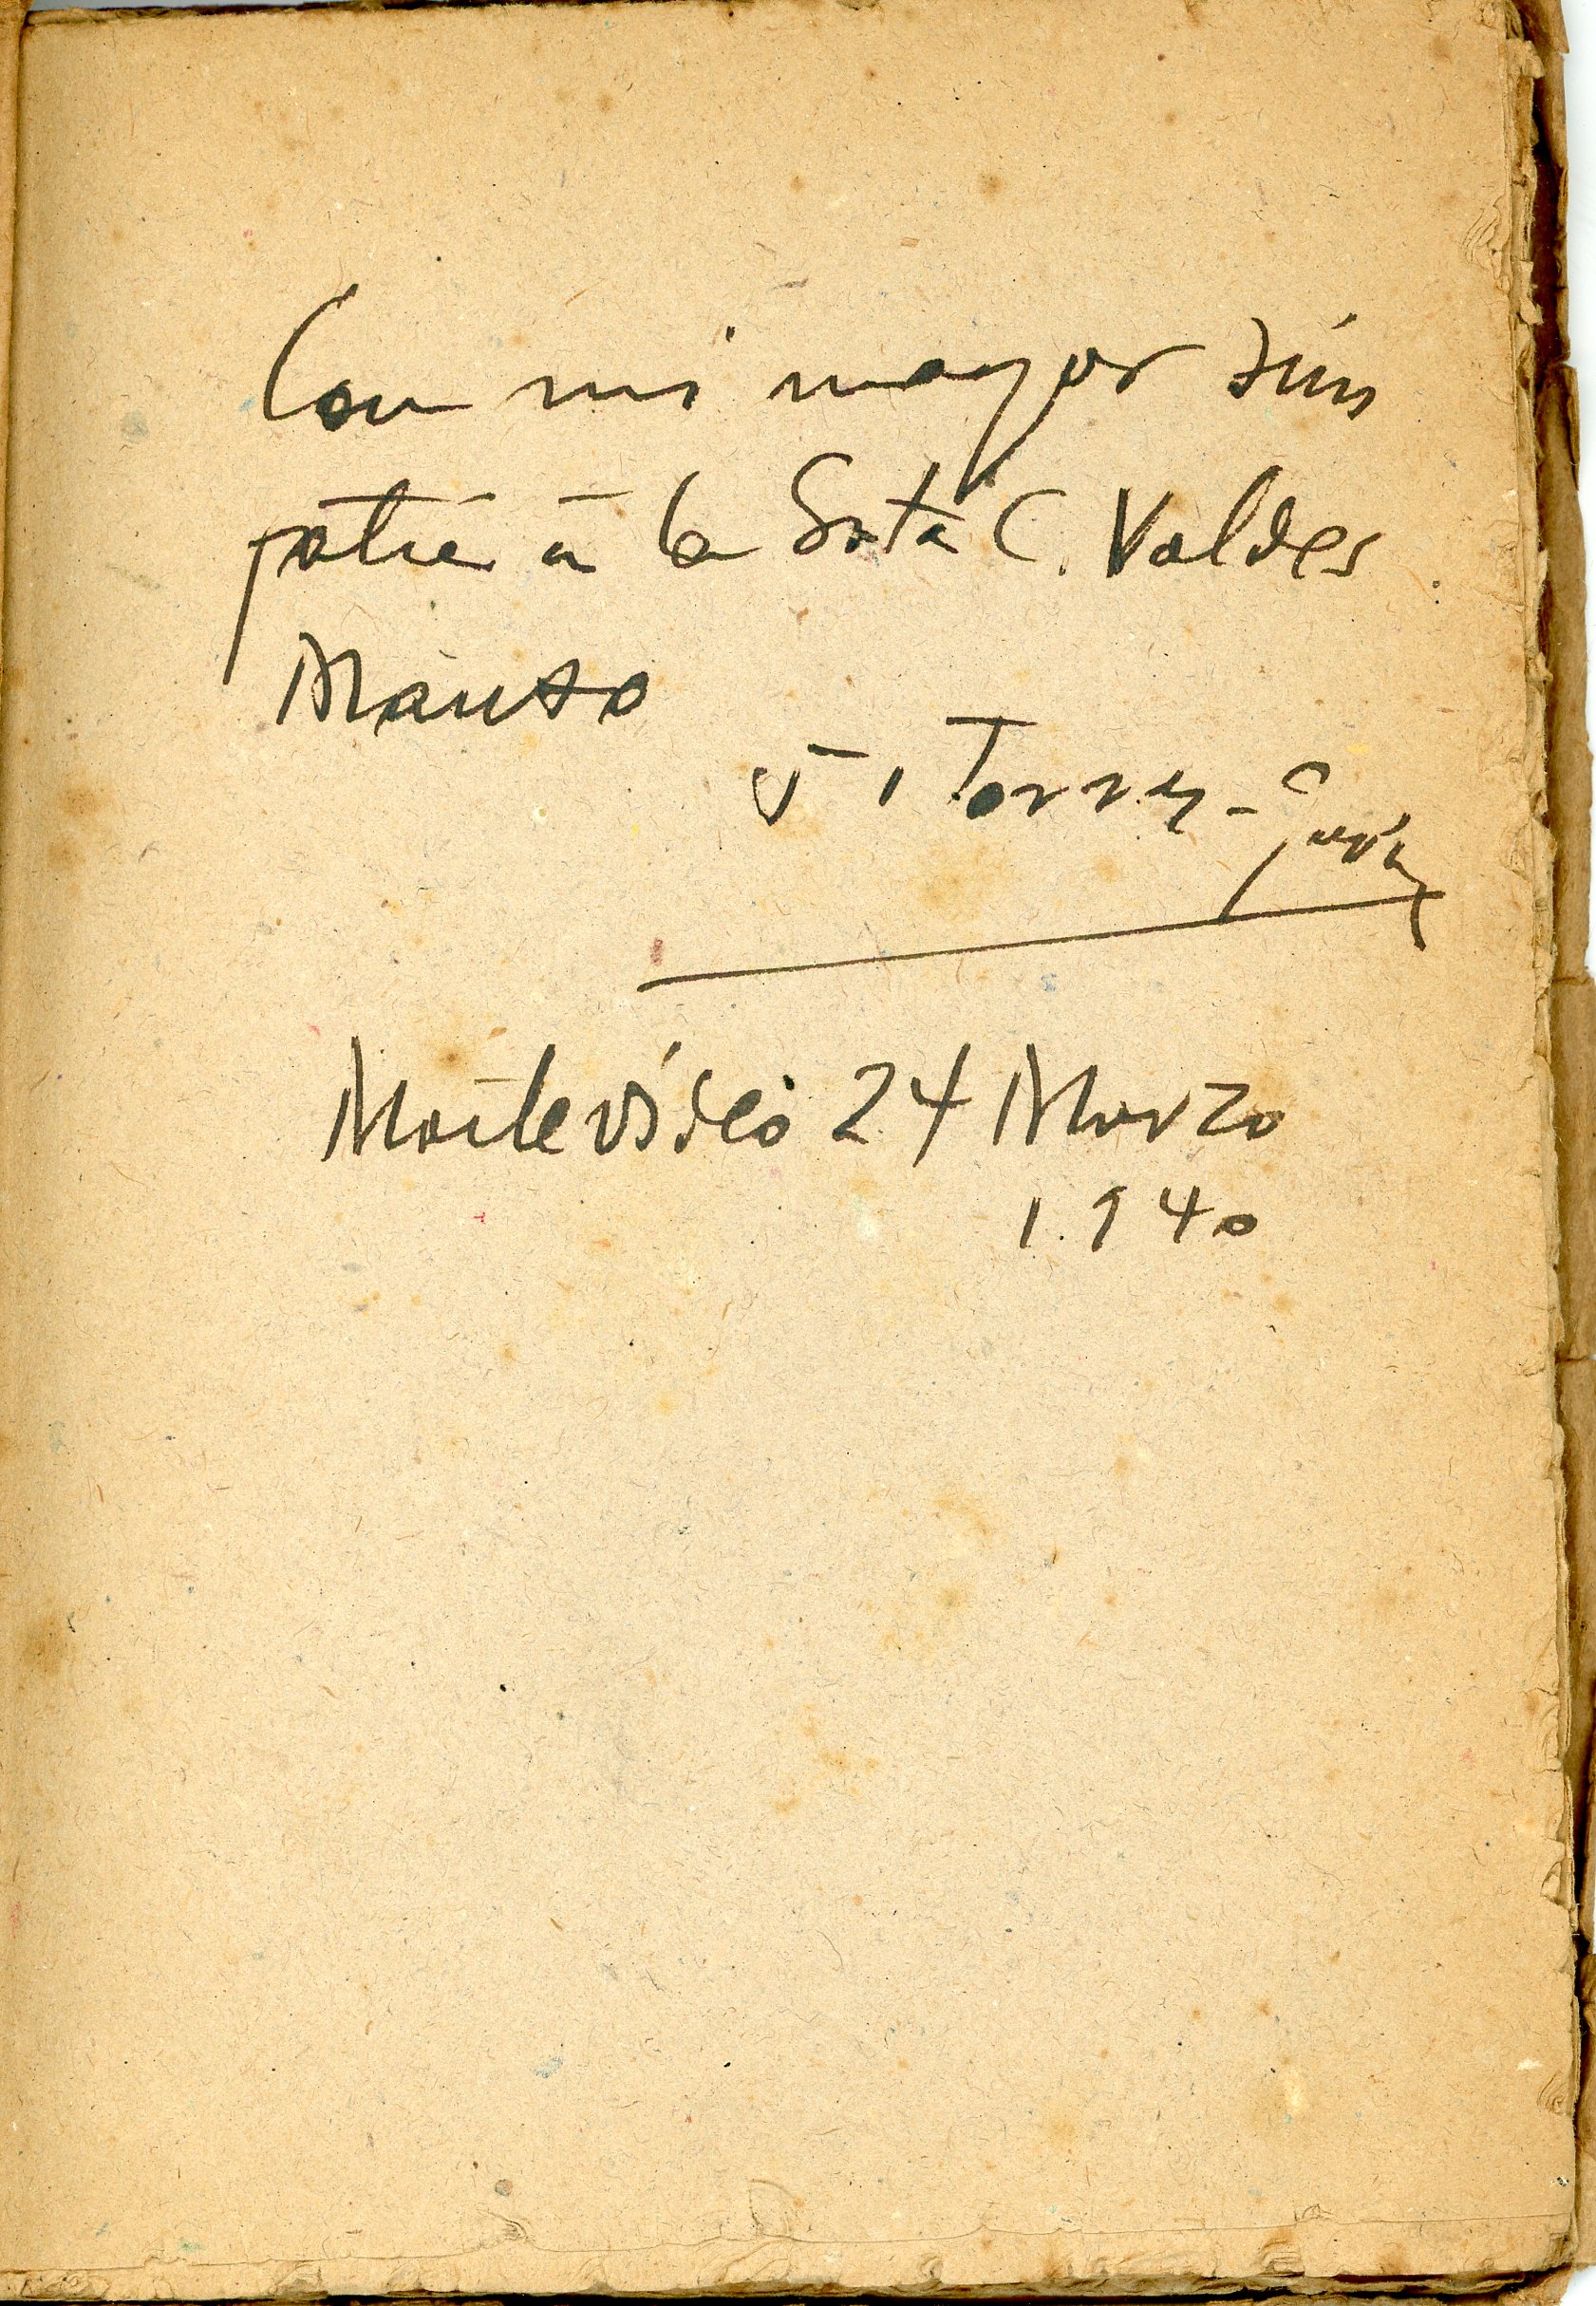 Con mi mayor sim
patia á la Srta C. Valdes
Manso
J. Torres-García
Montevideo 24 Marzo
1.940